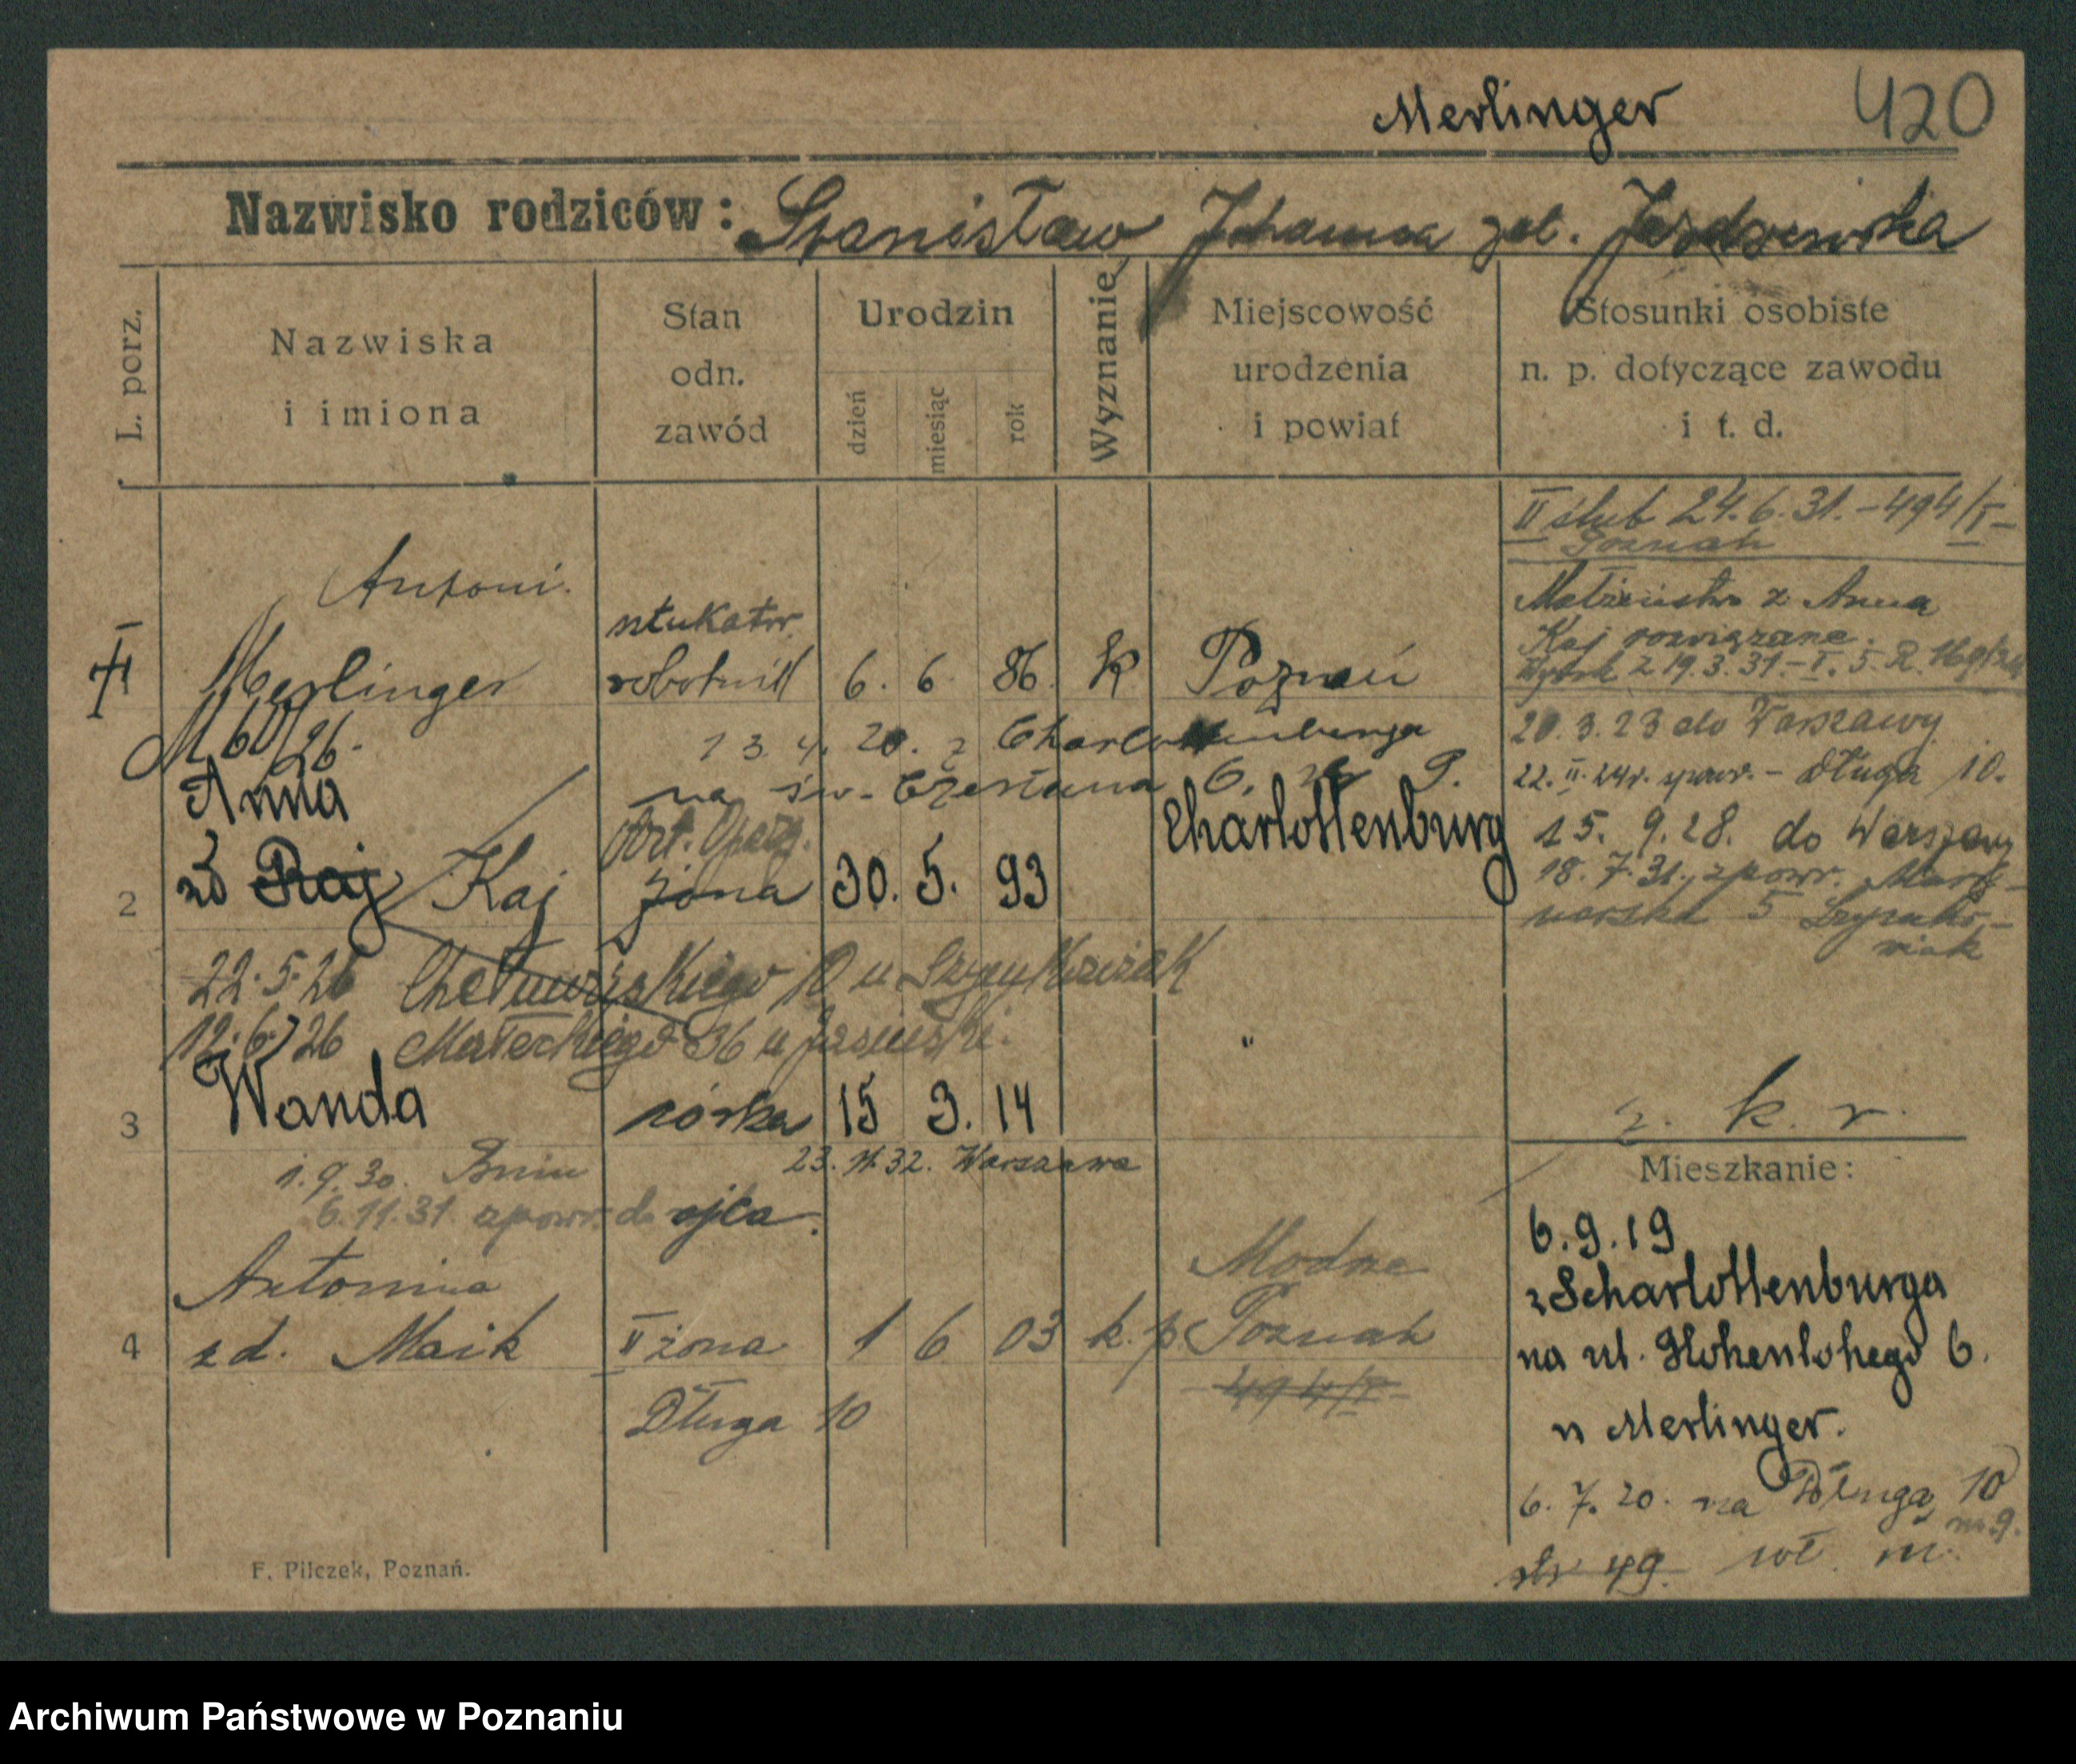 Merlinger 420
Nazwisko rodziców: Stanisław, Johanna
L. porz.
Nazwiska i imiona
Stan odn. zawód
Urodzin
dzień miesiąc rok
Wyznanie
Miejscowość urodzenia i powiat
Stosunki osobiste n. p. dotyczące zawodu i t. d.
II ślub 24.6.31. - 494/I -
Poznań
Antoni.
Merlinger
sztukator
robotnik 6. 6. 86. K Poznań
Małżeństwo z Anna
Kaj rozwiązane.
Wyrok z 19.3.31 - I. 5. R.
M 60/26.
13. 4. 20. z Charlottenburga
na św. Czesława 6.
20.3.23 do Warszawy
22. II. 24r. - Długa 10.
15. 9. 28. do Warszawy
18. 7. 31. zpowr.
5
2 Anna
zd Raj Kaj żona 30. 5. 93 Charlottenburg
22.5.26 10 u
12.6.26 Małeckiego 36 u
3 Wanda córka 15 3. 14 "
23. 32. Warszawa
1.9.30. Bnin
6.11.31 zpowr. do ojca.
z. k. r.
4 Antonina
zd. Maik II żona 1 6 03 k. Modrze
p. Poznań
494/I
Długa 10
Mieszkanie:
6.9.19
z Scharlottenburga
na ul. Hohenlohego 6.
u Merlinger.
6. 7. 20. na Długą 10
m. 9.
49. wł. m.
F. Pilczek, Poznań.
Archiwum Państwowe w Poznaniu